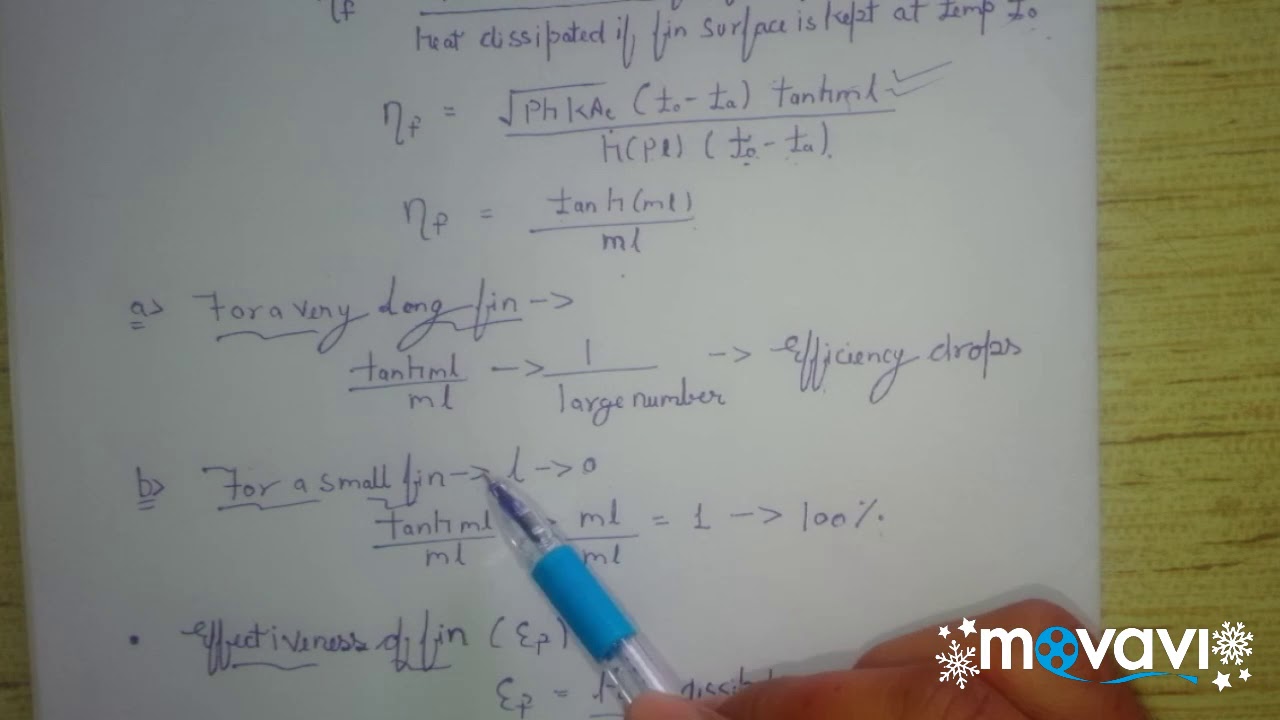 ηf
heat dissipated if fin surface is kept at temp to.
ηf = √PhKAc (to - ta) tanhml / h(Pl) (to - ta)
ηf = tanh(ml) / ml
a> For a very long fin ->
tanhml / ml -> 1 / large number -> Efficiency drops
b> For a small fin -> l -> 0
tanhml / ml ml / ml = 1 -> 100%.
• Effectiveness of fin (εf)
εf =
movavi